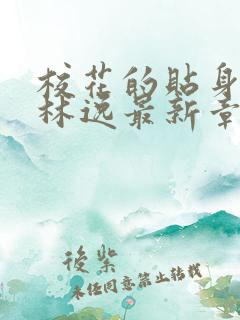 校花的贴身
林逸最新章
後紫
未经同意禁止转载